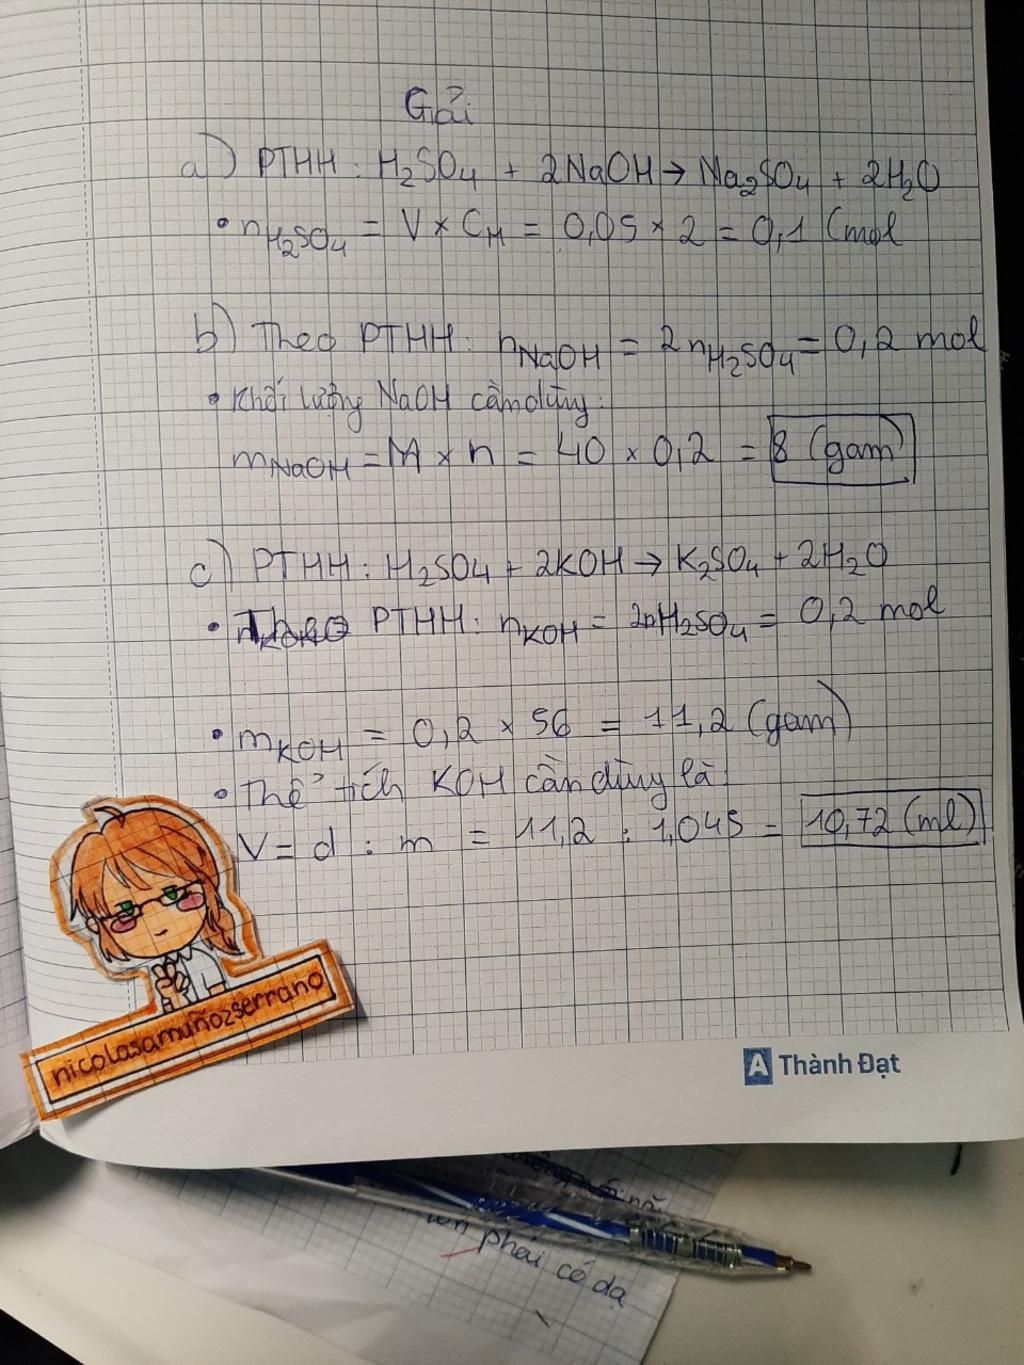 Giải
a) PTHH : H₂SO₄ + 2NaOH → Na₂SO₄ + 2H₂O
• nH₂SO₄ = V × CM = 0,05 × 2 = 0,1 (mol
b) Theo PTHH: nNaOH = 2nH₂SO₄ = 0,2 mol
• Khối lượng NaOH cần dùng:
mNaOH = M × n = 40 × 0,2 = 8 (gam)
c) PTHH : H₂SO₄ + 2KOH → K₂SO₄ + 2H₂O
• Theo PTHH: nKOH = 2nH₂SO₄ = 0,2 mol
• mKOH = 0,2 × 56 = 11,2 (gam)
• Thể tích KOH cần dùng là:
V = d : m = 11,2 : 1,045 = 10,72 (ml)
nicolasamuñozserrano
A Thành Đạt
phải có dạ